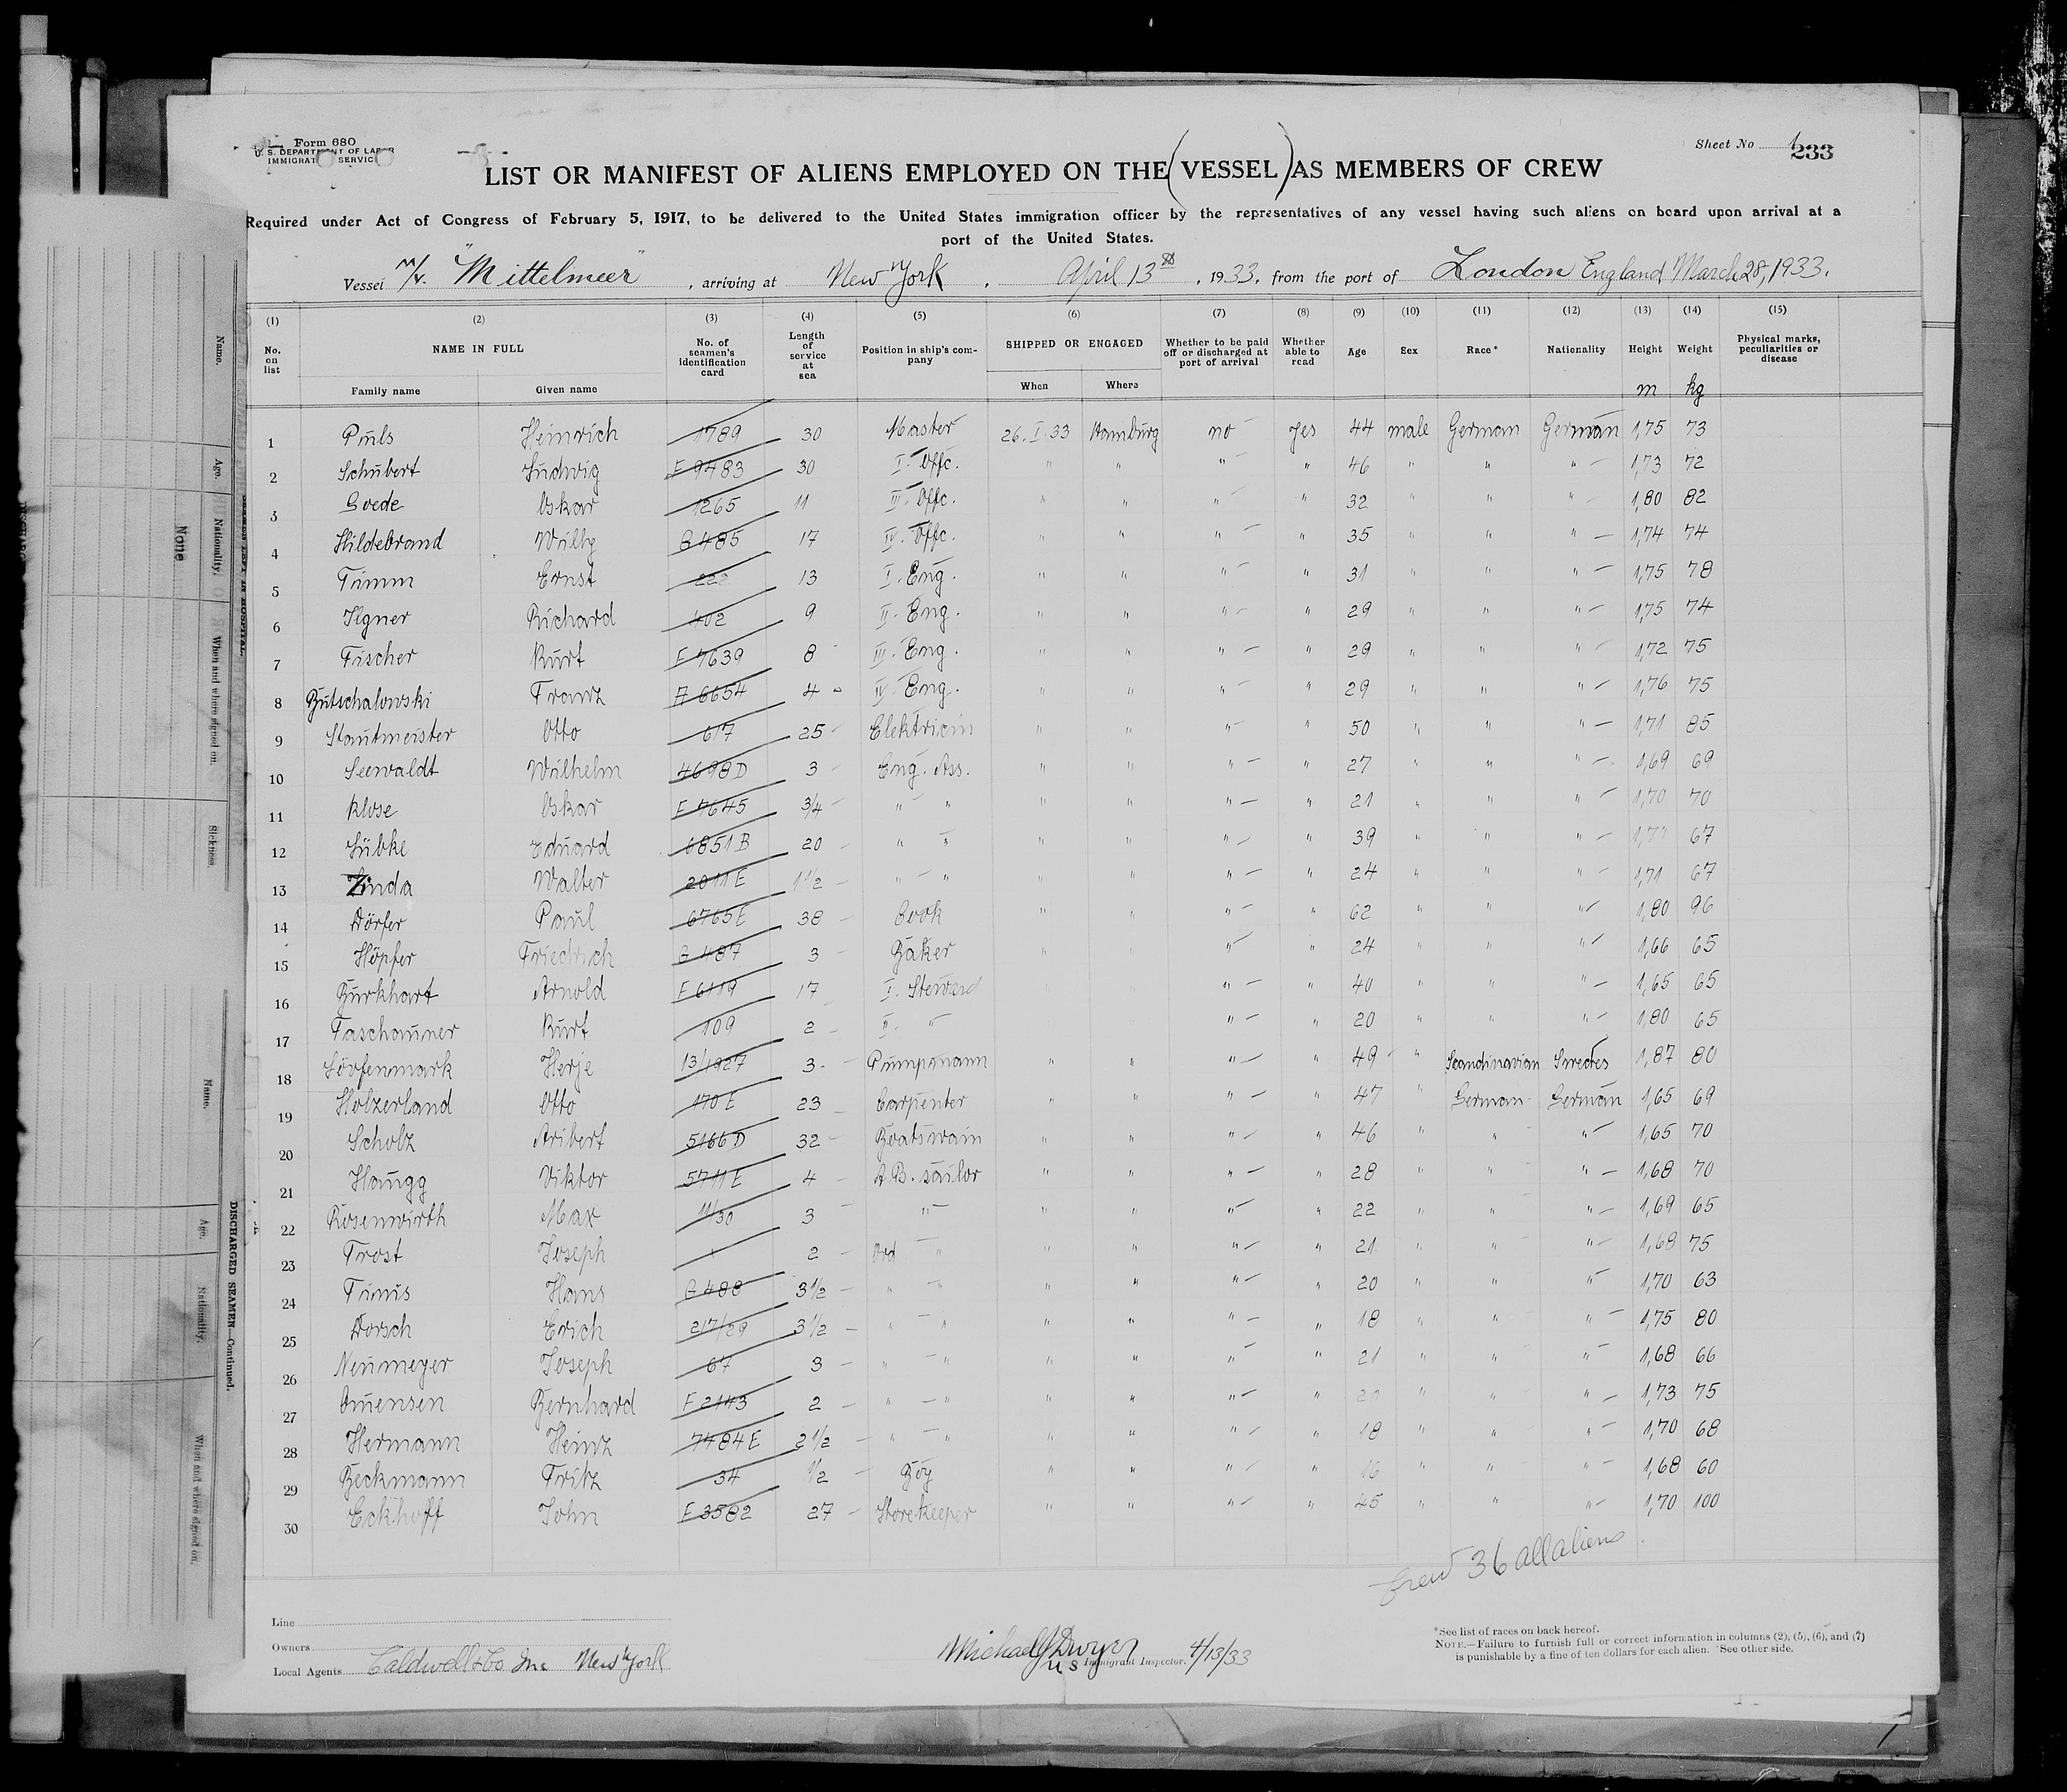 Form 680
U. S. DEPARTMENT OF LABOR
IMMIGRATION SERVICE
Sheet No 1
233
LIST OR MANIFEST OF ALIENS EMPLOYED ON THE (VESSEL) AS MEMBERS OF CREW
Required under Act of Congress of February 5, 1917, to be delivered to the United States immigration officer by the representatives of any vessel having such aliens on board upon arrival at a
port of the United States.
Vessel M/V. "Mittelmeer", arriving at New York, April 13th, 1933, from the port of London England March 28, 1933.
(1) (2) (3) (4) (5) (6) (7) (8) (9) (10) (11) (12) (13) (14) (15)
No. on list NAME IN FULL Family name Given name No. of seamen's identification card Length of service at sea Position in ship's company SHIPPED OR ENGAGED When Where Whether to be paid off or discharged at port of arrival Whether able to read Age Sex Race* Nationality Height Weight Physical marks, peculiarities or disease
m kg
1 Puls Heinrich 1789 30 Master 26.I.33 Hamburg no yes 44 male German German 1,75 73
2 Schubert Ludwig E 9483 30 I. Offc. " " " " 46 " " " 1,73 72
3 Goede Oskar 1265 11 III. Offc. " " " " 32 " " " 1,80 82
4 Hildebrand Willy G 485 17 IV. Offc. " " " " 35 " " " 1,74 74
5 Timm Ernst 222 13 I. Eng. " " " " 31 " " " 1,75 78
6 Ilgner Richard 402 9 II. Eng. " " " " 29 " " " 1,75 74
7 Fischer Kurt E 7639 8 III. Eng. " " " " 29 " " " 1,72 75
8 Butschalowski Franz A 6654 4 IV. Eng. " " " " 29 " " " 1,76 75
9 Stautmeister Otto 617 25 Elektricin " " " " 50 " " " 1,71 85
10 Seewaldt Wilhelm 4698 D 3 Eng. Ass. " " " " 27 " " " 1,69 69
11 Klose Oskar E 7645 3/4 " " " " " " 21 " " " 1,70 70
12 Lübke Eduard 6851 B 20 " " " " " " 39 " " " 67
13 Linda Walter 2011 E 1 1/2 " " " " " " 24 " " " 1,71 67
14 Dörfer Paul 6765 E 38 Cook " " " " 62 " " " 1,80 96
15 Höpfer Friedrich G 487 3 Baker " " " 24 " " " 1,66 65
16 Burkhart Arnold E 6119 17 I. Steward " " 40 " " " 1,65 65
17 Taschauner Kurt 109 2 II. " " " 20 " " " 1,80 65
18 Lövfenmark Herje 13/1927 3 Pumpmann " " " " 49 " Scandinavian Swedes 1,87 80
19 Holzerland Otto 170 E 23 Carpenter " " " " 47 " German German 1,65 69
20 Scholz Aribert 5166 D 32 Boatswain " " " " 46 " " " 1,65 70
21 Haugg Viktor 5711 E 4 A.B. sailor " " " " 28 " " " 1,68 70
22 Rosenwirth Max 11/30 3 " " " " " 22 " " " 1,69 65
23 Trost Joseph 2 Ord " " " " " 21 " " " 1,68 75
24 Tinius Hans G 488 3 1/2 " " " " " " 20 " " " 1,70 63
25 Dorsch Erich 217/29 3 1/2 " " " " " " 18 " " " 1,75 80
26 Neumeyer Joseph 67 3 " " " " " " 21 " " " 1,68 66
27 Onnensen Bernhard F 2143 2 " " " " " " " " " 1,73 75
28 Hermann Heinz 7484 E 2 1/2 " " " " " " 18 " " " 1,70 68
29 Beckmann Fritz 34 1/2 Boy " " " " 16 " " " 1,68 60
30 Eckhoff John E 3582 27 Storekeeper " " " " 45 " " " 1,70 100
Crew 36 all aliens
Line
Owners
Local Agents Caldwell & Co Inc New York
Michael J Dwyer 4/13/33
U S Immigrant Inspector.
*See list of races on back hereof.
NOTE.—Failure to furnish full or correct information in columns (2), (5), (6), and (7)
is punishable by a fine of ten dollars for each alien. See other side.
Name.
Age.
Nationality.
When and where signed on.
Sickness.
None
Name.
Age.
Nationality.
When and where signed on.
DISCHARGED SEAMEN—Continued.